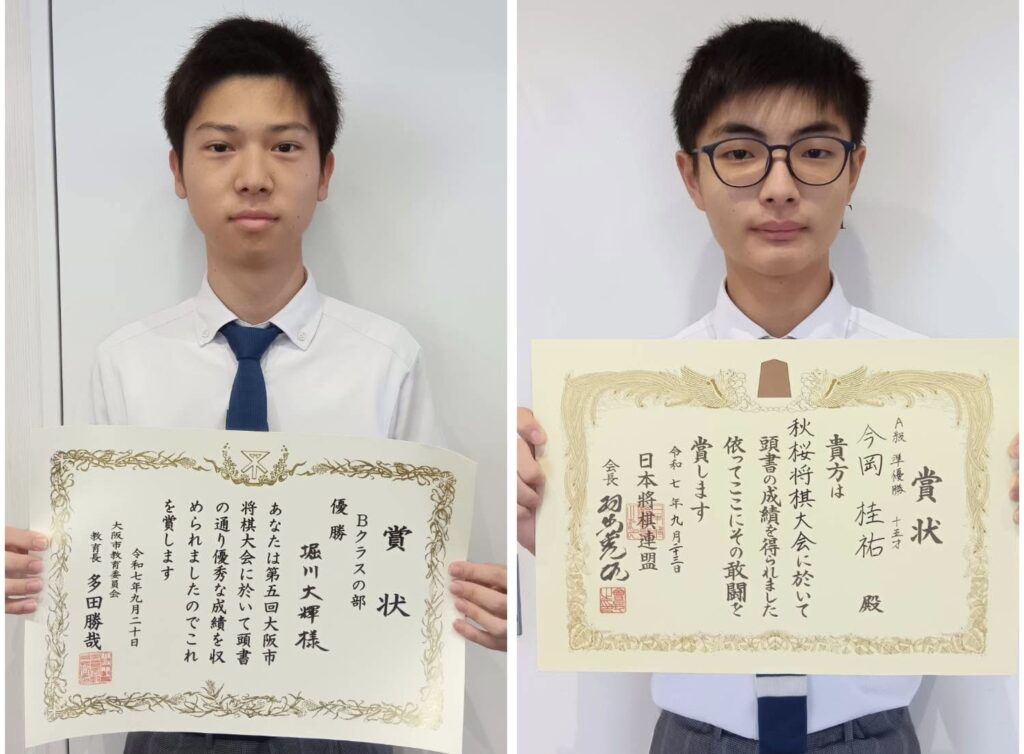 賞状
Bクラスの部
優勝
堀川大輝様
あなたは第五回大阪市
将棋大会に於いて頭書
の通り優秀な成績を収
められましたのでこれ
を賞します
令和七年九月二十日
大阪市教育委員会
教育長 多田勝哉
賞状
A級 準優勝 十五才
今岡桂祐 殿
貴方は
秋桜将棋大会に於いて
頭書の成績を得られました
依ってここにその敢闘を
賞します
令和七年九月二三日
日本将棋連盟
会長
T